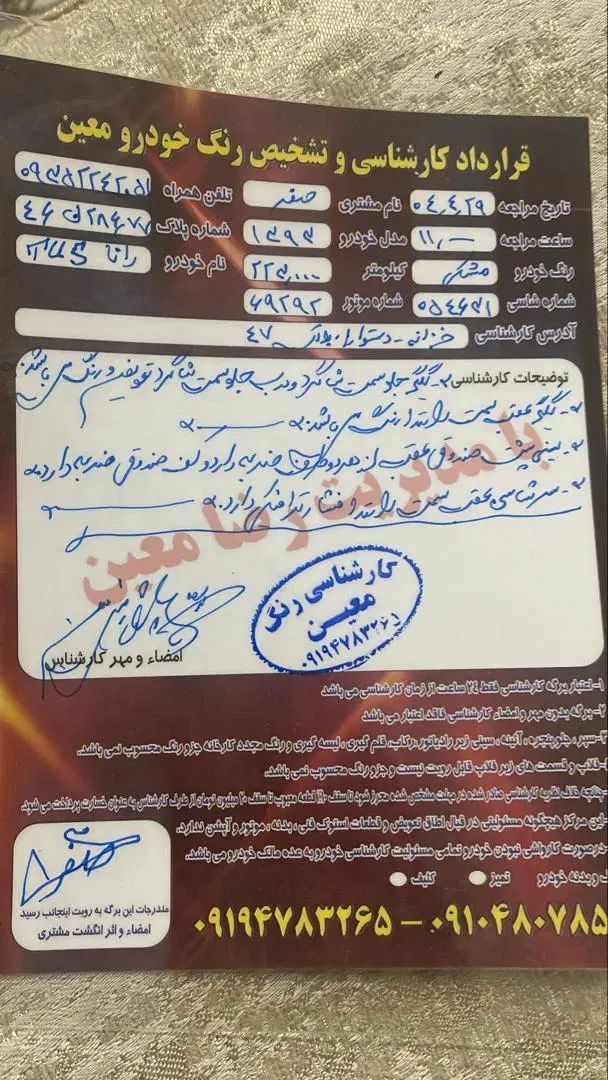 قرارداد کارشناسی و تشخیص رنگ خودرو معین
تاریخ مراجعه ۰۴,۴,۲۹ نام مشتری صفر تلفن همراه
ساعت مراجعه ۱۱,— مدل خودرو ۱۳۹۳ شماره پلاک
رنگ خودرو مشکی کیلومتر ۲۲۳,۰۰۰ نام خودرو رانا
شماره شاسی شماره موتور ۶۹۲۹۲
آدرس کارشناسی
توضیحات کارشناسی گلگیر جلو سمت شاگرد و درب جلو سمت شاگرد تعویض و رنگ می باشد
گلگیر عقب سمت راننده رنگ می باشد
سینی پشت صندوق عقب از هر دو طرف ضربه دارد و کف صندوق ضربه دارد
سرشاسی عقب سمت راننده فشار دارد
با مدیریت رضا معین
کارشناسی رنگ
معین
۰۹۱۹۴۷۸۳۲۶۵
امضاء و مهر کارشناس
۱-اعتبار برگه کارشناسی فقط ۲۴ ساعت از زمان کارشناسی می باشد
۲-برگه بدون مهر و امضاء کارشناسی فاقد اعتبار می باشد
۳-سپر ، جلو پنجره ، آئینه ، سینی زیر رادیاتور ،رکاب، قلم گیری ، لیسه گیری و رنگ مجدد کارخانه جزو رنگ محسوب نمی باشد.
قالپاق و قسمت های زیر قالپاق قابل رویت نیست و جزو رنگ محسوب نمی باشد.
چنانچه خلاف نظریه کارشناسی صادر شده در مهلت مشخص شده محرز شود تا سقف ۱۰٪ قطعه معیوب تا سقف ۲۰ میلیون تومان از طرف کارشناس به عنوان خسارت پرداخت می شود.
این مرکز هیچگونه مسئولیتی در قبال اطاق تعویض و قطعات استوک فنی ، بدنه ، موتور و آپشن ندارد.
درصورت کارواشی نبودن خودرو تمامی مسئولیت کارشناسی خودرو به عهده مالک خودرو می باشد.
و بدنه خودرو تمیز کثیف
صفر
مندرجات این برگه به رویت اینجانب رسید
امضاء و اثر انگشت مشتری
۰۹۱۹۴۷۸۳۲۶۵ – ۰۹۱۰۴۸۰۷۸۵